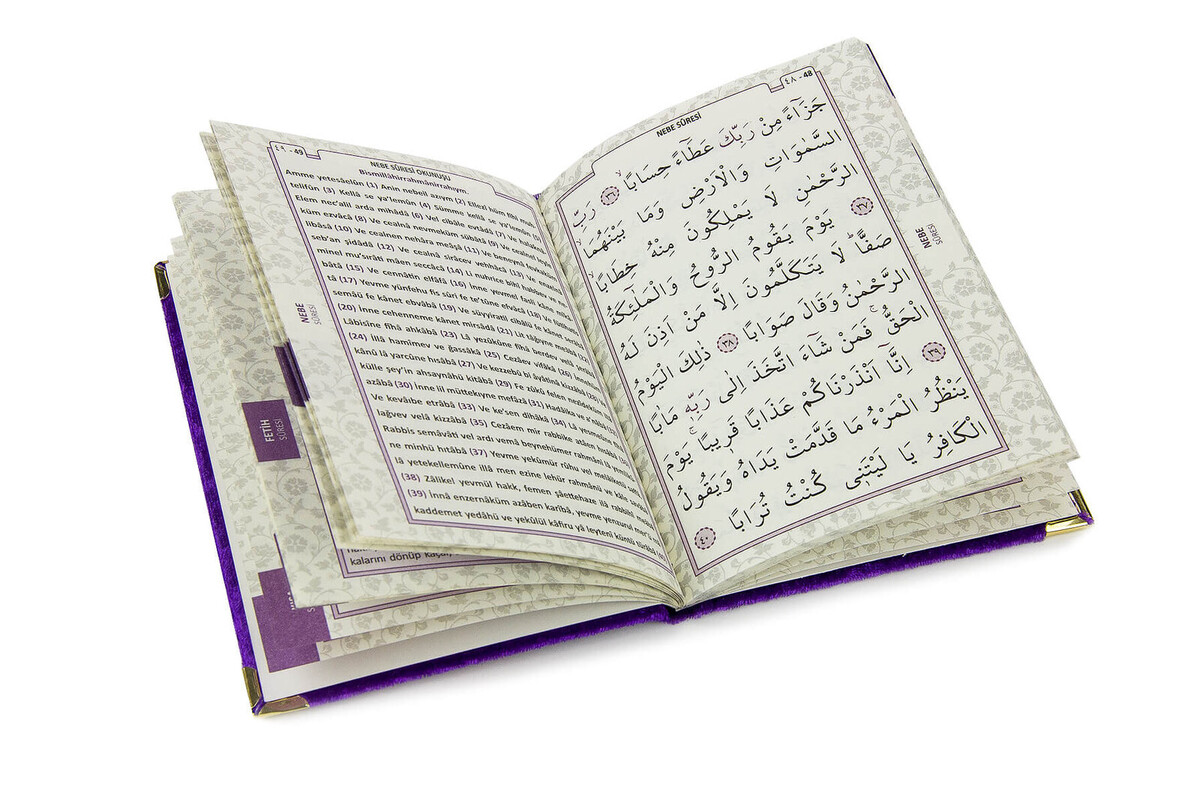 ٤٨ - 48
NEBE SÛRESİ
جَزَٓاءً مِنْ رَبِّكَ عَطَٓاءً حِسَابًاۙ ﴿٣٦﴾ رَبِّ
السَّمٰوَاتِ وَالْاَرْضِ وَمَا بَيْنَهُمَا
الرَّحْمٰنِ لَا يَمْلِكُونَ مِنْهُ خِطَابًاۚ ﴿٣٧﴾
يَوْمَ يَقُومُ الرُّوحُ وَالْمَلٰٓئِكَةُ
صَفًّاۜ لَا يَتَكَلَّمُونَ اِلَّا مَنْ اَذِنَ لَهُ
الرَّحْمٰنُ وَقَالَ صَوَابًا ﴿٣٨﴾ ذٰلِكَ الْيَوْمُ
الْحَقُّۚ فَمَنْ شَٓاءَ اتَّخَذَ اِلٰى رَبِّه۪ مَاٰبًا ﴿٣٩﴾
اِنَّٓا اَنْذَرْنَاكُمْ عَذَابًا قَر۪يبًاۚ يَوْمَ
يَنْظُرُ الْمَرْءُ مَا قَدَّمَتْ يَدَاهُ وَيَقُولُ
الْكَافِرُ يَا لَيْتَن۪ى كُنْتُ تُرَابًا ﴿٤٠﴾
NEBE
SÛRESİ
٤٩ - 49
NEBE SÛRESİ OKUNUŞU
Bismillâhirrahmânirrahıym.
Amme yetesâelûn (1) Anin nebeil azıym (2) Ellezî hüm fîhi
telifûn (3) Kellâ se ya'lemûn (4) Sümme kellâ se ya'lemûn
Elem nec'alil arda mihâdâ (6) Vel cibâle evtâdâ (7) Ve halaknâ
küm ezvâcâ (8) Ve cealnâ nevmeküm sübâtâ (9) Ve cealnel
libâsâ (10) Ve cealnen nehâra meâşâ (11) Ve beneynâ fevkaküm
seb'an şidâdâ (12) Ve cealnâ sirâcev vehhâcâ (13) Ve enzelnâ
minel mu'sırâti mâen seccâcâ (14) Li nuhrice bihî habbev ve
bâtâ (15) Ve cennâtin elfâfâ (16) İnne yevmel fasli kâne
tâ (17) Yevme yünfehu fis sûri fe te'tûne efvâcâ (18) Ve fütihatis
semâü fe kânet ebvâbâ (19) Ve süyyiratil cibâlü fe kânet
(20) İnne cehenneme kânet mirsâdâ (21) Lit tâğıyne meâbâ (22)
Lâbisîne fîhâ ahkâbâ (23) Lâ yezûkûne fîhâ berdev velâ
(24) İllâ hamîmev ve ğassâkâ (25) Cezâev vifâkâ (26) İnnehüm
kânû lâ yarcûne hısâbâ (27) Ve kezzebû bi âyâtinâ kizzâbâ (28)
külle şey'in ahsaynâhü kitâbâ (29) Fe zûkû felen nezîdeküm
azâbâ (30) İnne lil müttekıyne mefâzâ (31) Hadâika ve
Ve kevâıbe etrâbâ (33) Ve ke'sen dihâkâ (34) Lâ yesmeûne
lağvev velâ kizzâbâ (35) Cezâem mir rabbike atâen hısâbâ
Rabbis semâvâti vel ardı vemâ beynehümer rahmâni lâ
ne minhü hıtâbâ (37) Yevme yekûmür rûhu vel melâiketü
lâ yetekellemûne illâ men ezine lehür rahmânü ve kâle
(38) Zâlikel yevmül hakk, femen şâettehaze ilâ rabbihî
(39) İnnâ enzernâküm azâben karîbâ, yevme yenzurul mer'ü
kaddemet yedâhü ve yekûlül kâfiru yâ leytenî küntü türâbâ
NEBE
SÛRESİ
FETİH
SÛRESİ
kalarını dönüp kaçar,